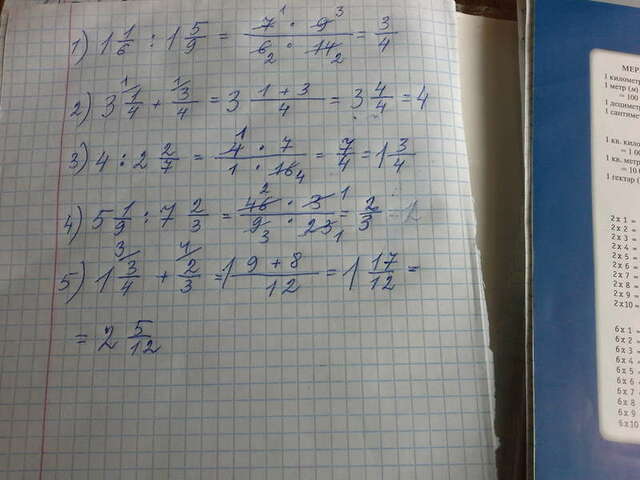 1) 1 1/6 : 1 5/9 = 7¹ · 9³ / 6₂ · 14₂ = 3/4
2) 3 1/4 + 3/4 = 3 1+3/4 = 3 4/4 = 4
3) 4 : 2 2/7 = 4¹ · 7 / 1 · 16₄ = 7/4 = 1 3/4
4) 5 1/9 : 7 2/3 = 46² · 3¹ / 9₃ · 23₁ = 2/3
5) 1 3/4 + 2/3 = 1 9+8/12 = 1 17/12 =
= 2 5/12
МЕР
1 километр
1 метр (м)
= 100
1 дециметр
1 сантиме
1 кв. кило
= 1 00
1 кв. метр
= 10 0
1 гектар (
2 x 1 =
2 x 2 =
2 x 3 =
2 x 4 =
2 x 5 =
2 x 6 =
2 x 7 =
2 x 8 =
2 x 9 =
2 x 10 =
6 x 1 =
6 x 2 =
6 x 3 =
6 x 4 =
6 x 5 =
6 x 6 =
6 x 7 =
6 x 8
6 x 9
6 x 10